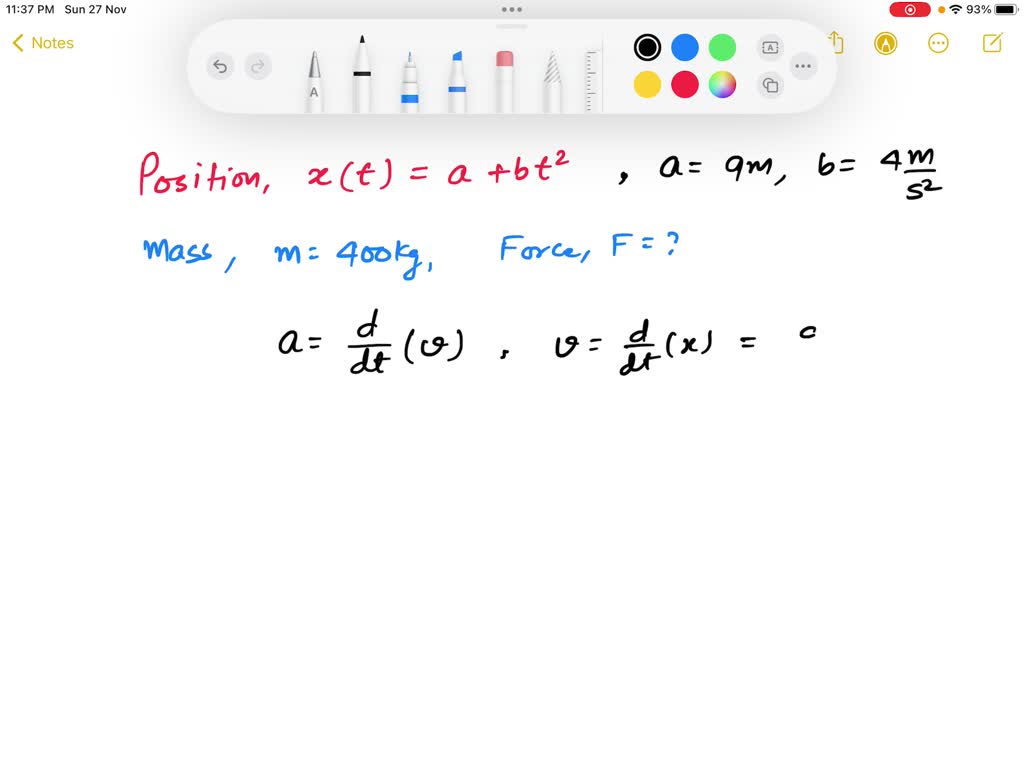 11:37 PM Sun 27 Nov 93%
Notes
A A
Position, x(t) = a + bt² , a = 9m, b = 4 m/s²
Mass, m = 400kg, Force, F = ?
a = d/dt (v) , v = d/dt (x) =